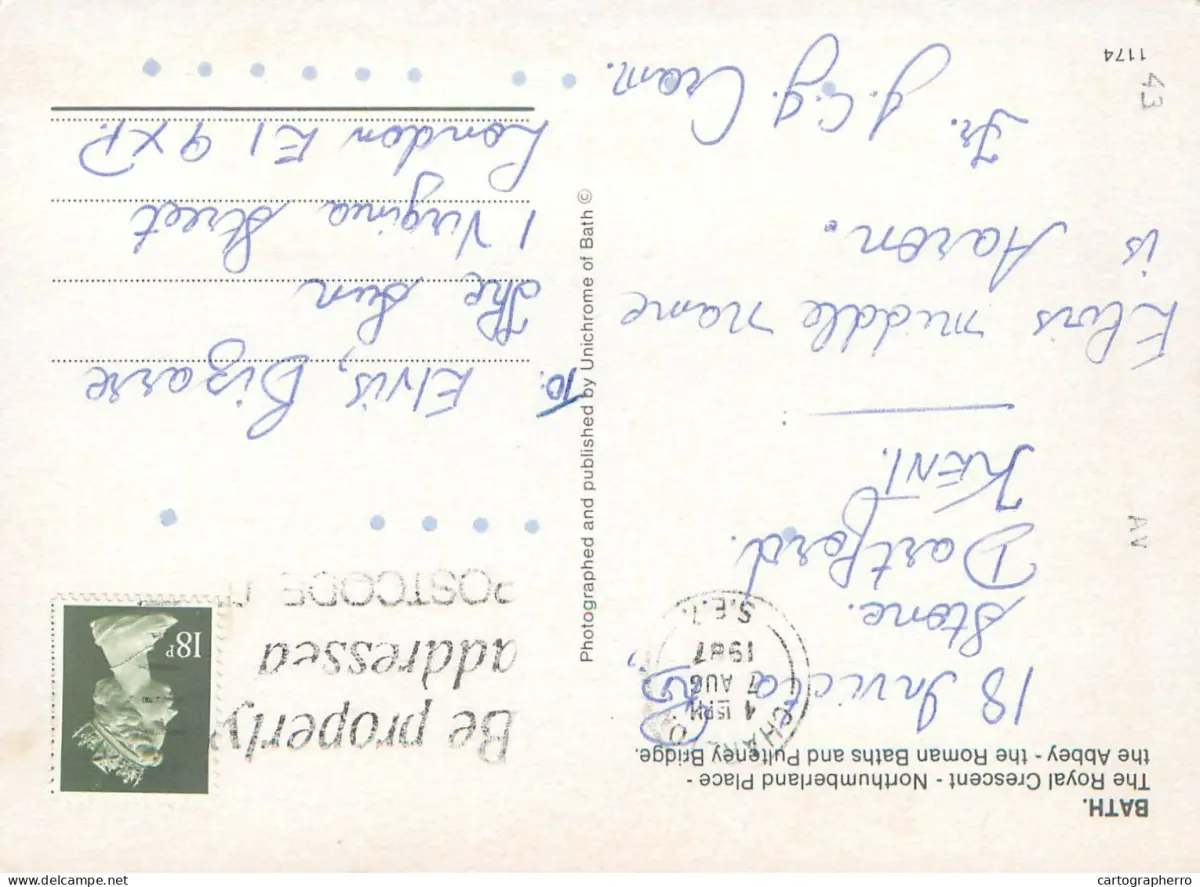 BATH.
The Royal Crescent - Northumberland Place -
the Abbey - the Roman Baths and Pulteney Bridge.
18 Invicta Rd,
Stone.
Dartford.
KENT.
Elvis middle name
is Aaron.
Fr. J.C.G. Cram.
43
1174
AV
Photographed and published by Unichrome of Bath ©
18P
Be properly
addressed
POSTCODE
4 15PM
7 AUG
1987
S.E.7.
To: Elvis, Bizarre
The Sun
1 Virginia Street
London E1 9XP.
delcampe.net
cartographerro